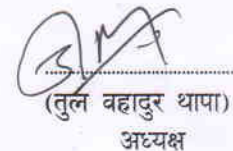 (तुल वहादुर थापा)
अध्यक्ष